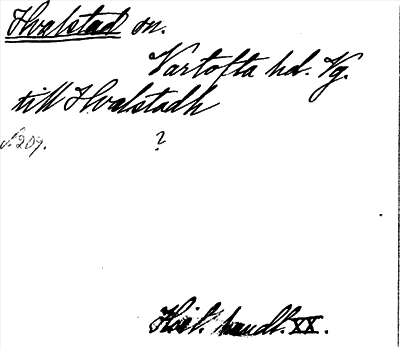 Hvalstad on.
Vartofta hd. Vg.
till Hvalstadh
s. 209. ?
Hist. handl. XX.